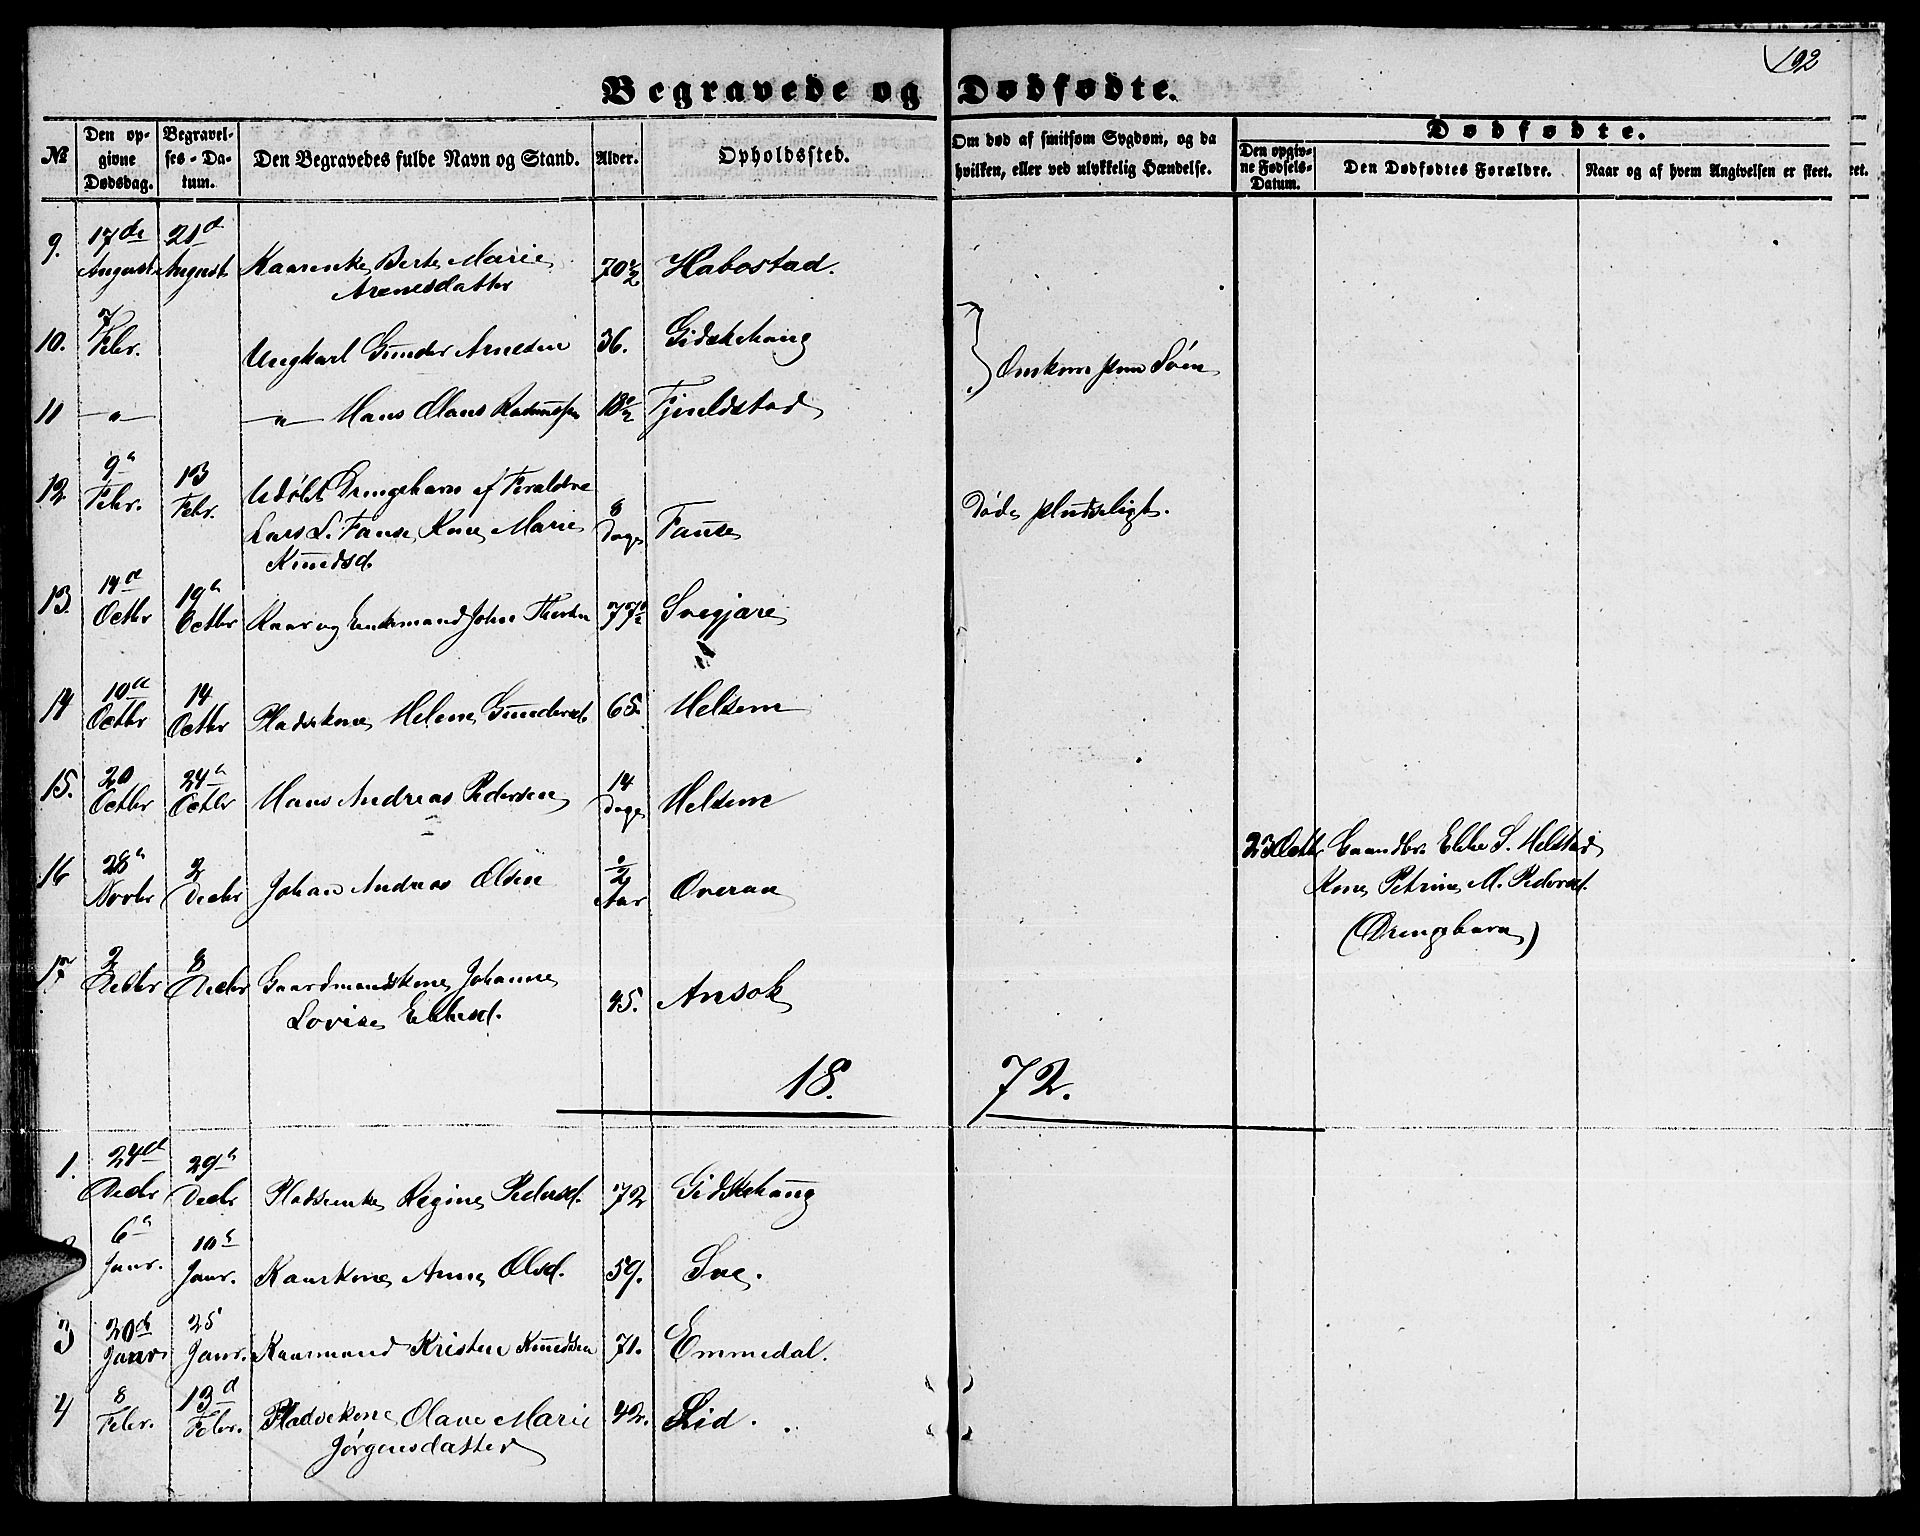 192
Begravede og Dødfødte.
№
Den opgivne Dødsdag.
Begravelses-Datum.
Den Begravedes fulde Navn og Stand.
Alder.
Opholdssted.
Om død af smitsom Sygdom, og da hvilken, eller ved ulykkelig Hændelse.
Dødfødte.
Den opgivne Fødsels-Datum.
Den Dødfødtes Forældre.
Naar og af hvem Angivelsen er skeet.
9. 17de August 21d August Kaarenke Berte Marie 70½ Habostad.
Arnesdatter
10. 7 Febr. Ungkarl Gunder Arnesen 36. Gidskehaug
Omkom paa Søen
11 —"— —"— Hans Olaus Rasmussen 18½ Fjeldstad
12 9de Febr. 13 Febr. Udøbt Drengebarn af Foræeldre
Lars L. Fause, Kone Marie 8 Dage Fause Døde pludseligt.
Knudsd.
13. 14d Octbr 19de Octbr Kaar og Enkemand John 77½ Svegjare
14 10de Octbr 14 Octbr Pladskone Helene Gundersd. 65. Helsem
15. 20 Octbr 24de Octbr Hans Andreas Pedersen 14 Dage Helsem
16 28de Novbr 2 Decbr Johan Andreas Olsen ½ Aar Overaa
23 Octbr Gaardbr. Ekke S. Helstad
Kone Petrine M. Pedersd.
(Drengebarn)
17 2 Decbr 8 Decbr Gaardmandskone Johanne
Lovise Ekkesd. 45. Ansok
18 72.
1. 24d Decbr 29de Decbr Pladsenke Regine Pedersd. 72 Gidskehaug
6de Janr. 10de Janr. Kaarkone Anne Olsd. 59. Sve.
3 20de Janr 25 Janr. Kaarmand Kristen Knudsen 71. Emmedal.
4 8 Febr. 13d Febr. Pladskone Olave Marie 42. Lid.
Jørgensdatter